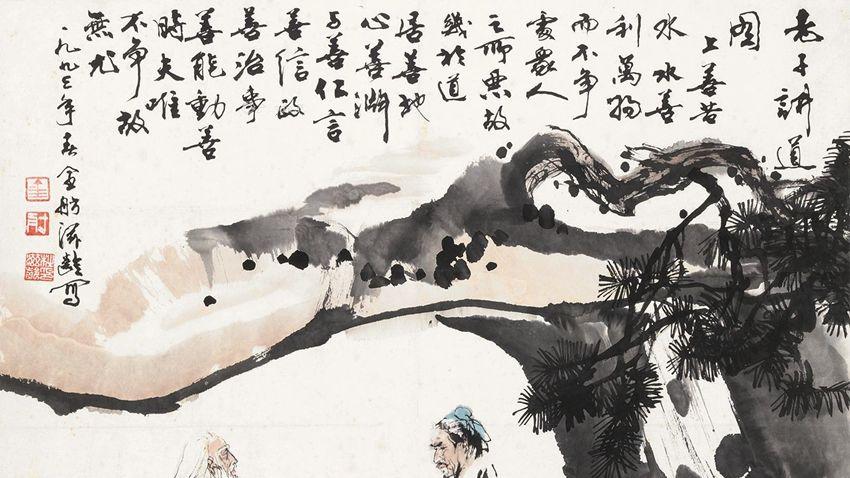 老子講道
圖
上善若
水水善
利萬物
而不爭
處衆人
之所惡故
幾於道
居善地
心善淵
与善仁言
善信政
善治事
善能動善
時夫唯
不争故
無尤
一九九三年春金舫寫